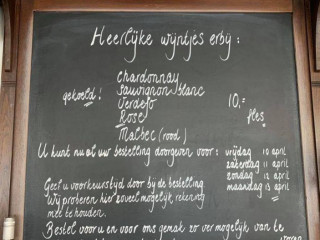 Heerlijke wijntjes erbij :
Chardonnay
gekoeld ! Sauvignon blanc
Verdejo 10,=
Rosé fles.
Malbec (rood)
U kunt nu al uw bestelling doorgeven voor : vrijdag 10 april
zaterdag 11 april
zondag 12 april
maandag 13 april
Geef u voorkeurstijd door bij de bestelling.
Wij proberen hier zoveel mogelijk rekening
mee te houden.
Bestel voor u en voor ons gemak zo ver mogelijk van te